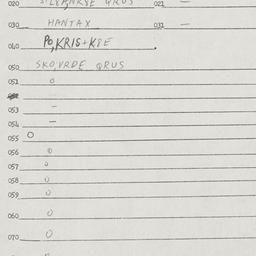 020 021 —
030 HANTAX 031 —
040 PO,KRIS+KSE
050 SKO,VRDE QRUS
051 0
053 –
054 –
055 0
056 0
057 0
058 0
059 0
060 0
070 0